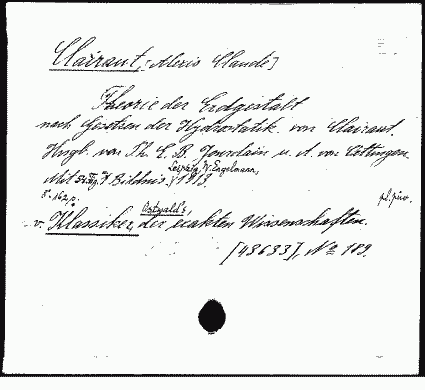 Clairaut, [Alexis Claude]
Theorie der Erdgestalt
nach Gesetzen der Hydrostatik von Clairaut.
Hrsgb. von Ph. E. B. Jourdain u. A. von Öttingen.
Leipzig, W. Engelmann,
Mit Bildnis. 1913.
8°. 162 p.
pl. piv.
Ostwald's,
v. Klassiker, der exakten Wissenschaften.
[43633], No 189.